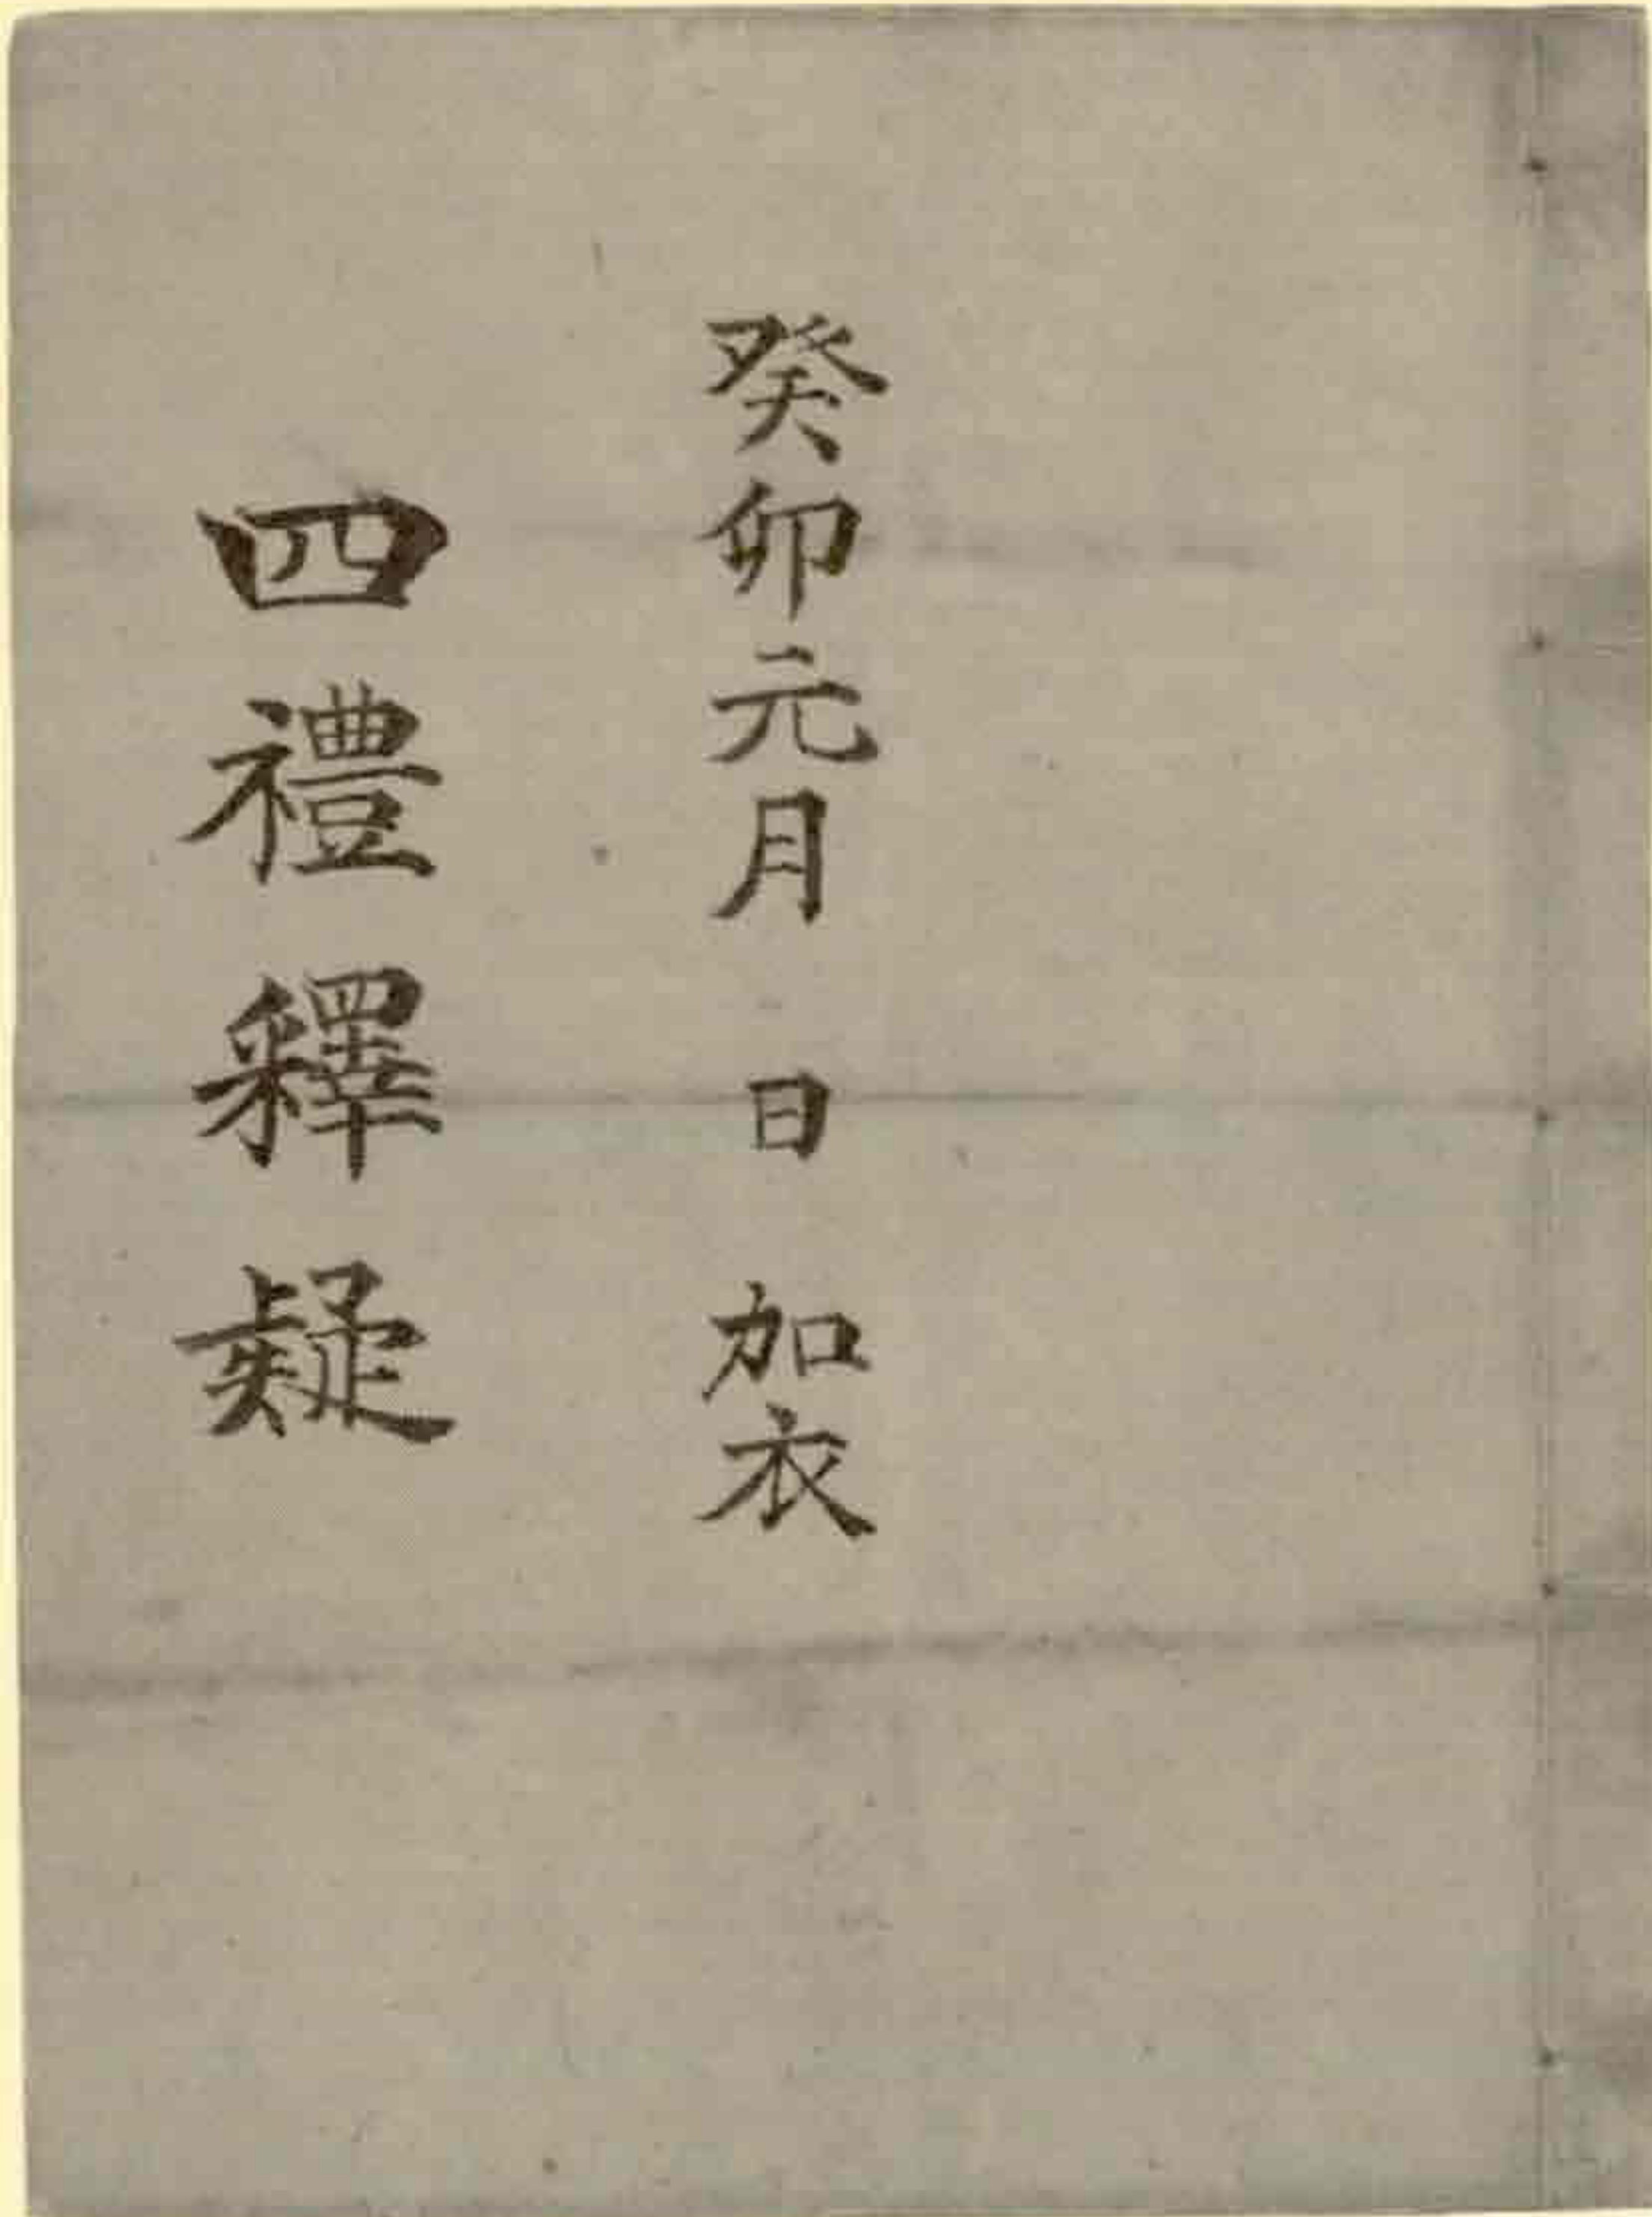 癸卯元月 日 加衣
四禮釋疑